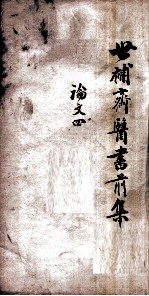 世補齋醫書前集
論文四